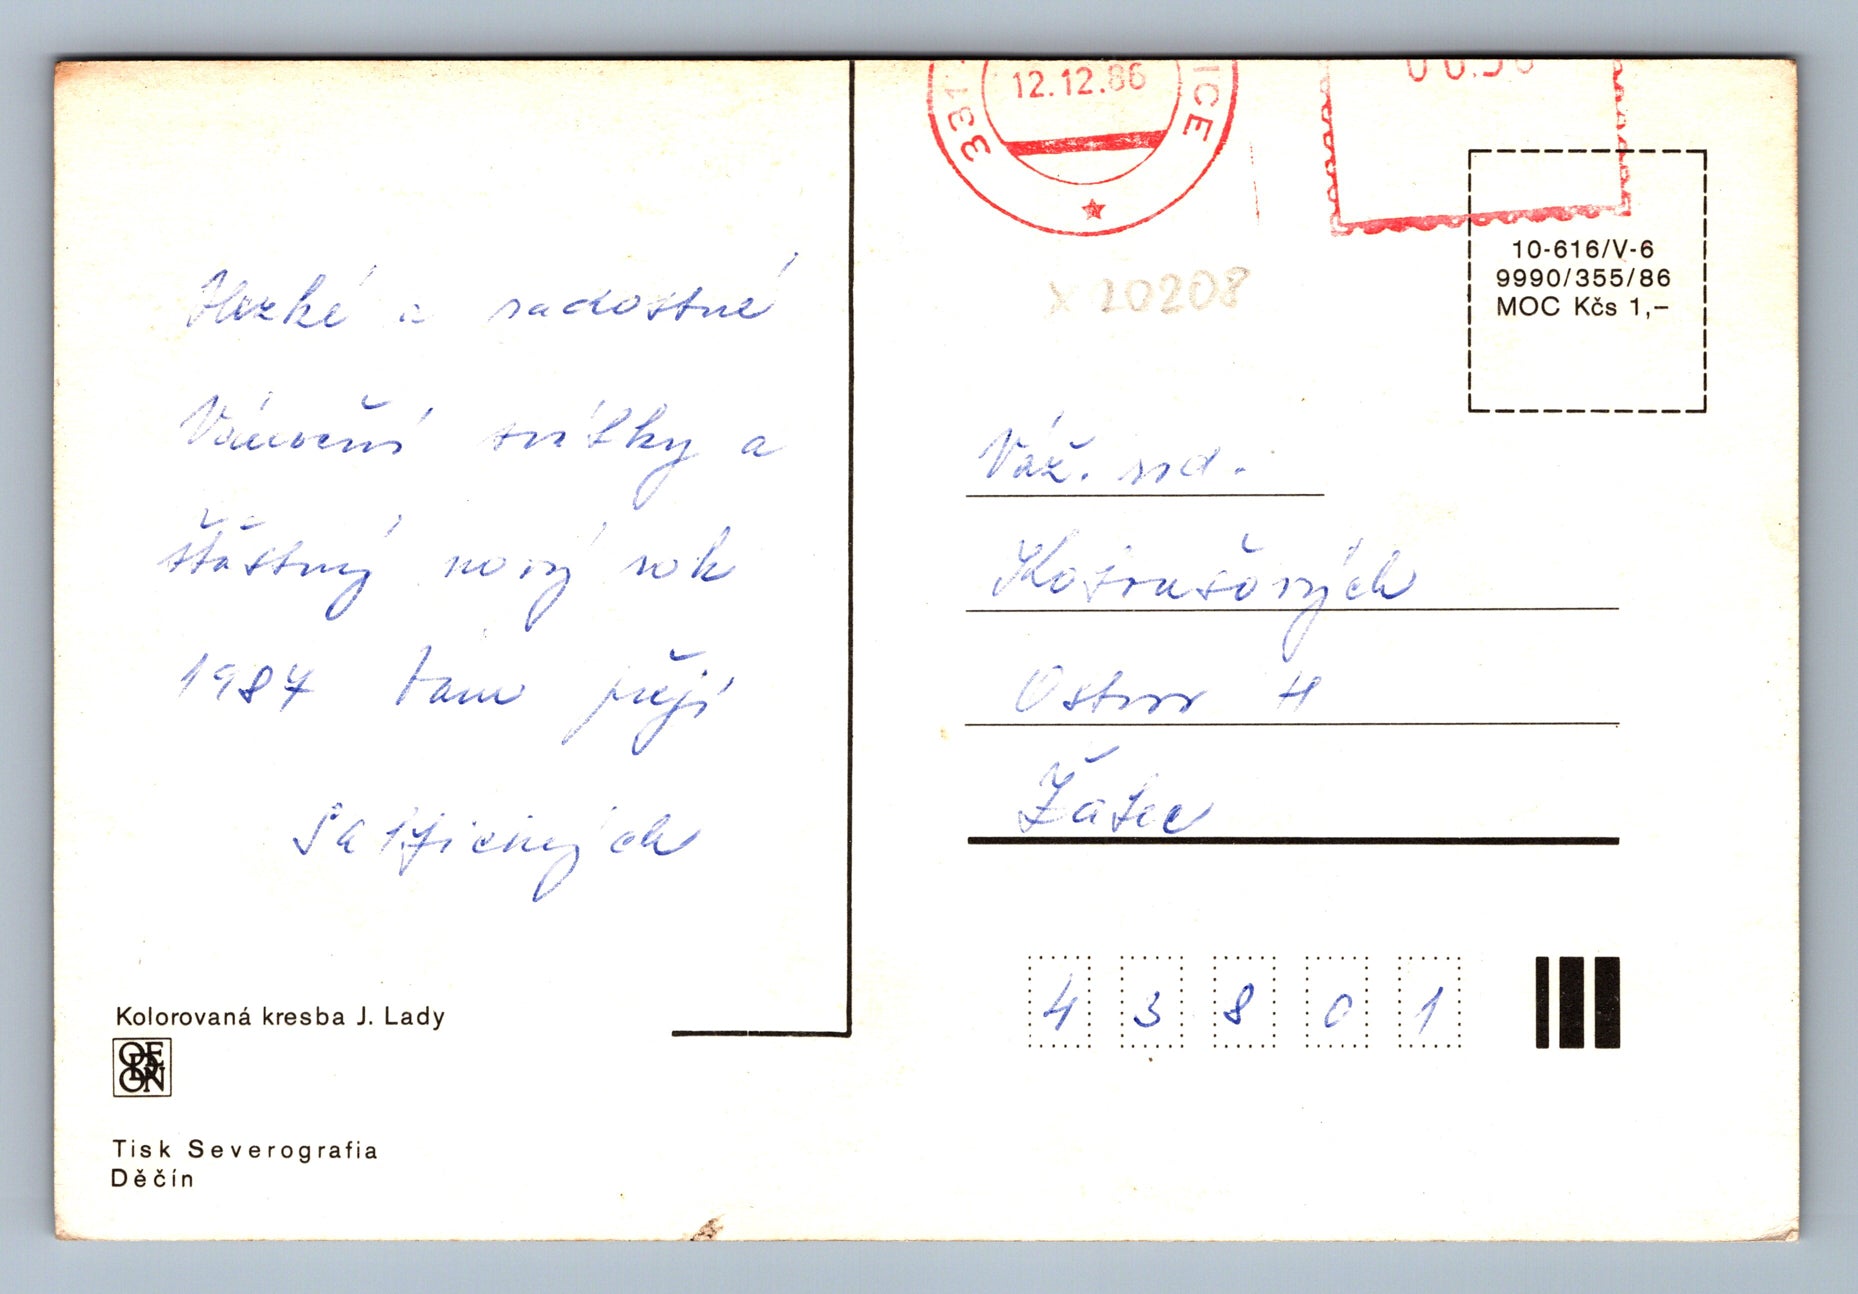 Hezké a radostné
Vánoční svátky a
šťastný nový rok
1987 Vám přejí
Kolorovaná kresba J. Lady
ODEON
Tisk Severografia
Děčín
331
12.12.86
ICE
00.50
x 20208
10-616/V-6
9990/355/86
MOC Kčs 1,–
Váž. rod.
Ostrov
Žatec
43801